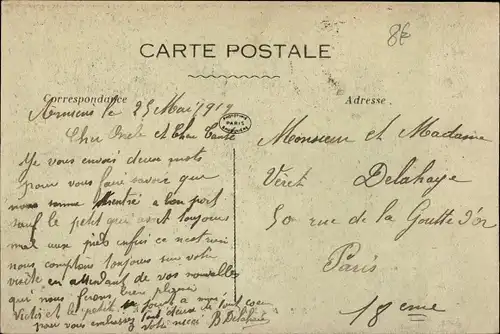 8€
CARTE POSTALE
Correspondance
Adresse
Amiens le 25 Mai 1919
Cher Oncle et Chère Tante
PARIS
Je vous envoi deux mots
pour vous faire savoir que
nous somme rentré a bon port
sauf le petit qui avait toujours
mal aux pieds enfin ce n'est rien
nous comptons toujours sur votre
visite en attendant de vos nouvelles
que nous ferons bien plaisir
Victor et le petit se joint a moi
pour vous embrasser tout deux de tout cœur
votre nièce B Delahaye
Monsieur et Madame
Véret Delahaye
50 rue de la Goutte d'or
Paris
18eme